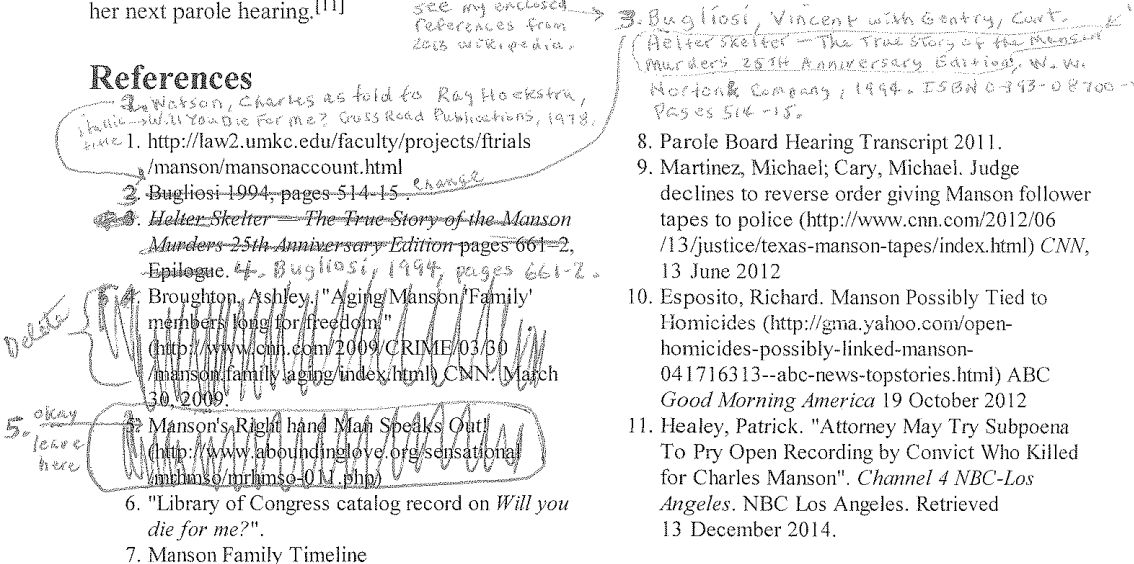 her next parole hearing.[11]
see my enclosed
references from
2013 wikipedia.
References
2. Watson, Charles as told to Ray Hoekstra,
italic → Will You Die For me? Cross Road Publications, 1978.
title
1. http://law2.umkc.edu/faculty/projects/ftrials
/manson/mansonaccount.html
2. Bugliosi 1994, pages 514-15 . change
3. Helter Skelter — The True Story of the Manson
Murders 25th Anniversary Edition pages 661–2,
Epilogue. 4. Bugliosi, 1994, pages 661-2.
Delete
4. Broughton, Ashley. "Aging Manson 'Family'
members long for freedom."
(http://www.cnn.com/2009/CRIME/03/30
/manson.family.aging/index.html) CNN. March
30, 2009.
5. okay
leave
here
5. Manson's Right hand Man Speaks Out!
(http://www.aboundinglove.org/sensational
/mrhmso/mrhmso-011.php)
6. "Library of Congress catalog record on Will you
die for me?".
7. Manson Family Timeline
3. Bugliosi, Vincent with Gentry, Curt.
Helter Skelter – The True Story of the Manson
Murders 25TH Anniversary Edition, W. W.
Norton & Company, 1994. ISBN 0-393-08700-
Pages 514-15.
8. Parole Board Hearing Transcript 2011.
9. Martinez, Michael; Cary, Michael. Judge
declines to reverse order giving Manson follower
tapes to police (http://www.cnn.com/2012/06
/13/justice/texas-manson-tapes/index.html) CNN,
13 June 2012
10. Esposito, Richard. Manson Possibly Tied to
Homicides (http://gma.yahoo.com/open-
homicides-possibly-linked-manson-
041716313--abc-news-topstories.html) ABC
Good Morning America 19 October 2012
11. Healey, Patrick. "Attorney May Try Subpoena
To Pry Open Recording by Convict Who Killed
for Charles Manson". Channel 4 NBC-Los
Angeles. NBC Los Angeles. Retrieved
13 December 2014.